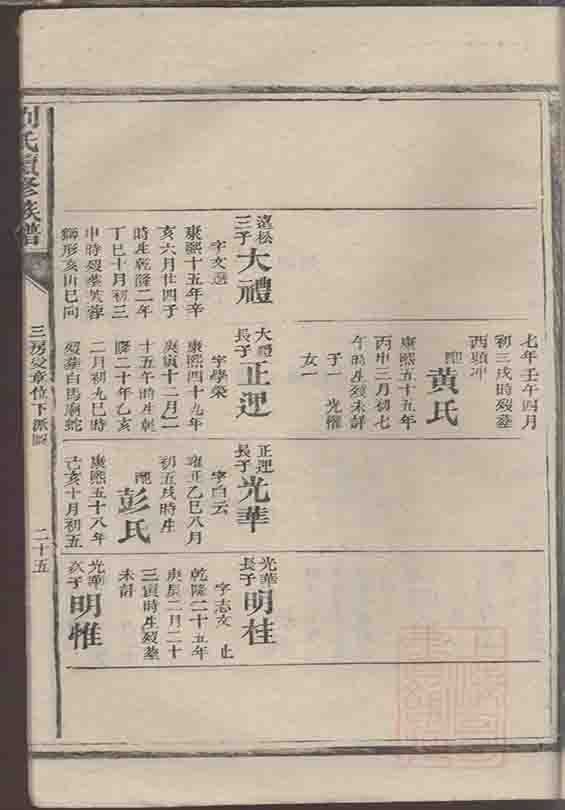 劉氏續修族譜
三房文章位下派圖
二十五
遠松三子大禮
字文選
康熙十五年辛
亥六月廿四子
時生乾隆二年
丁巳十月初三
申時歿葬芙蓉
獅形亥山巳向
七年壬午四月
初三戌時歿葬
西頭冲
配黃氏
康熙五十五年
丙申三月初七
午時生歿未詳
子一光權
女一
大禮長子正運
字學榮
康熙四十九年
庚寅十二月二
十五午時生乾
隆二十年乙亥
二月初九巳時
歿葬白馬廟蛇
正運長子光華
字白云
雍正乙巳八月
初五戌時生
配彭氏
康熙五十八年
己亥十月初五
光華長子明桂
字志文止
乾隆二十五年
庚辰二月二十
三寅時生歿葬
未詳
光華次子明惟